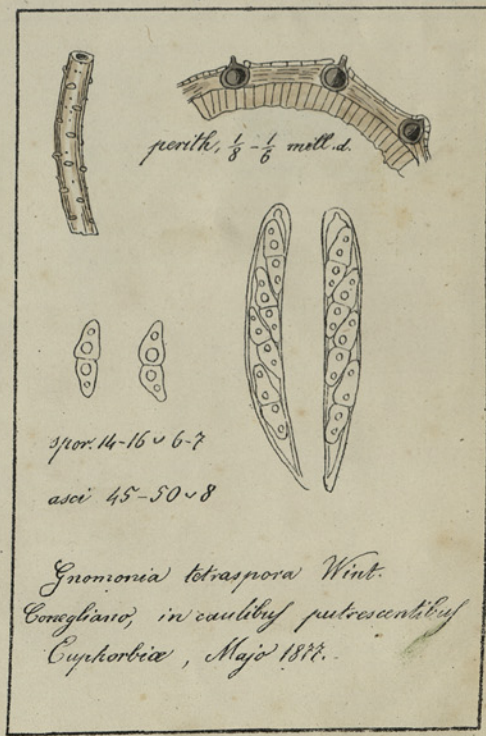 perith. 1/8 - 1/6 mill. d.
spor. 14-16 ⌣ 6-7
asci 45-50 ⌣ 8
Gnomonia tetraspora Wint.
Conegliano, in caulibus putrescentibus
Euphorbiæ, Majo 1877.